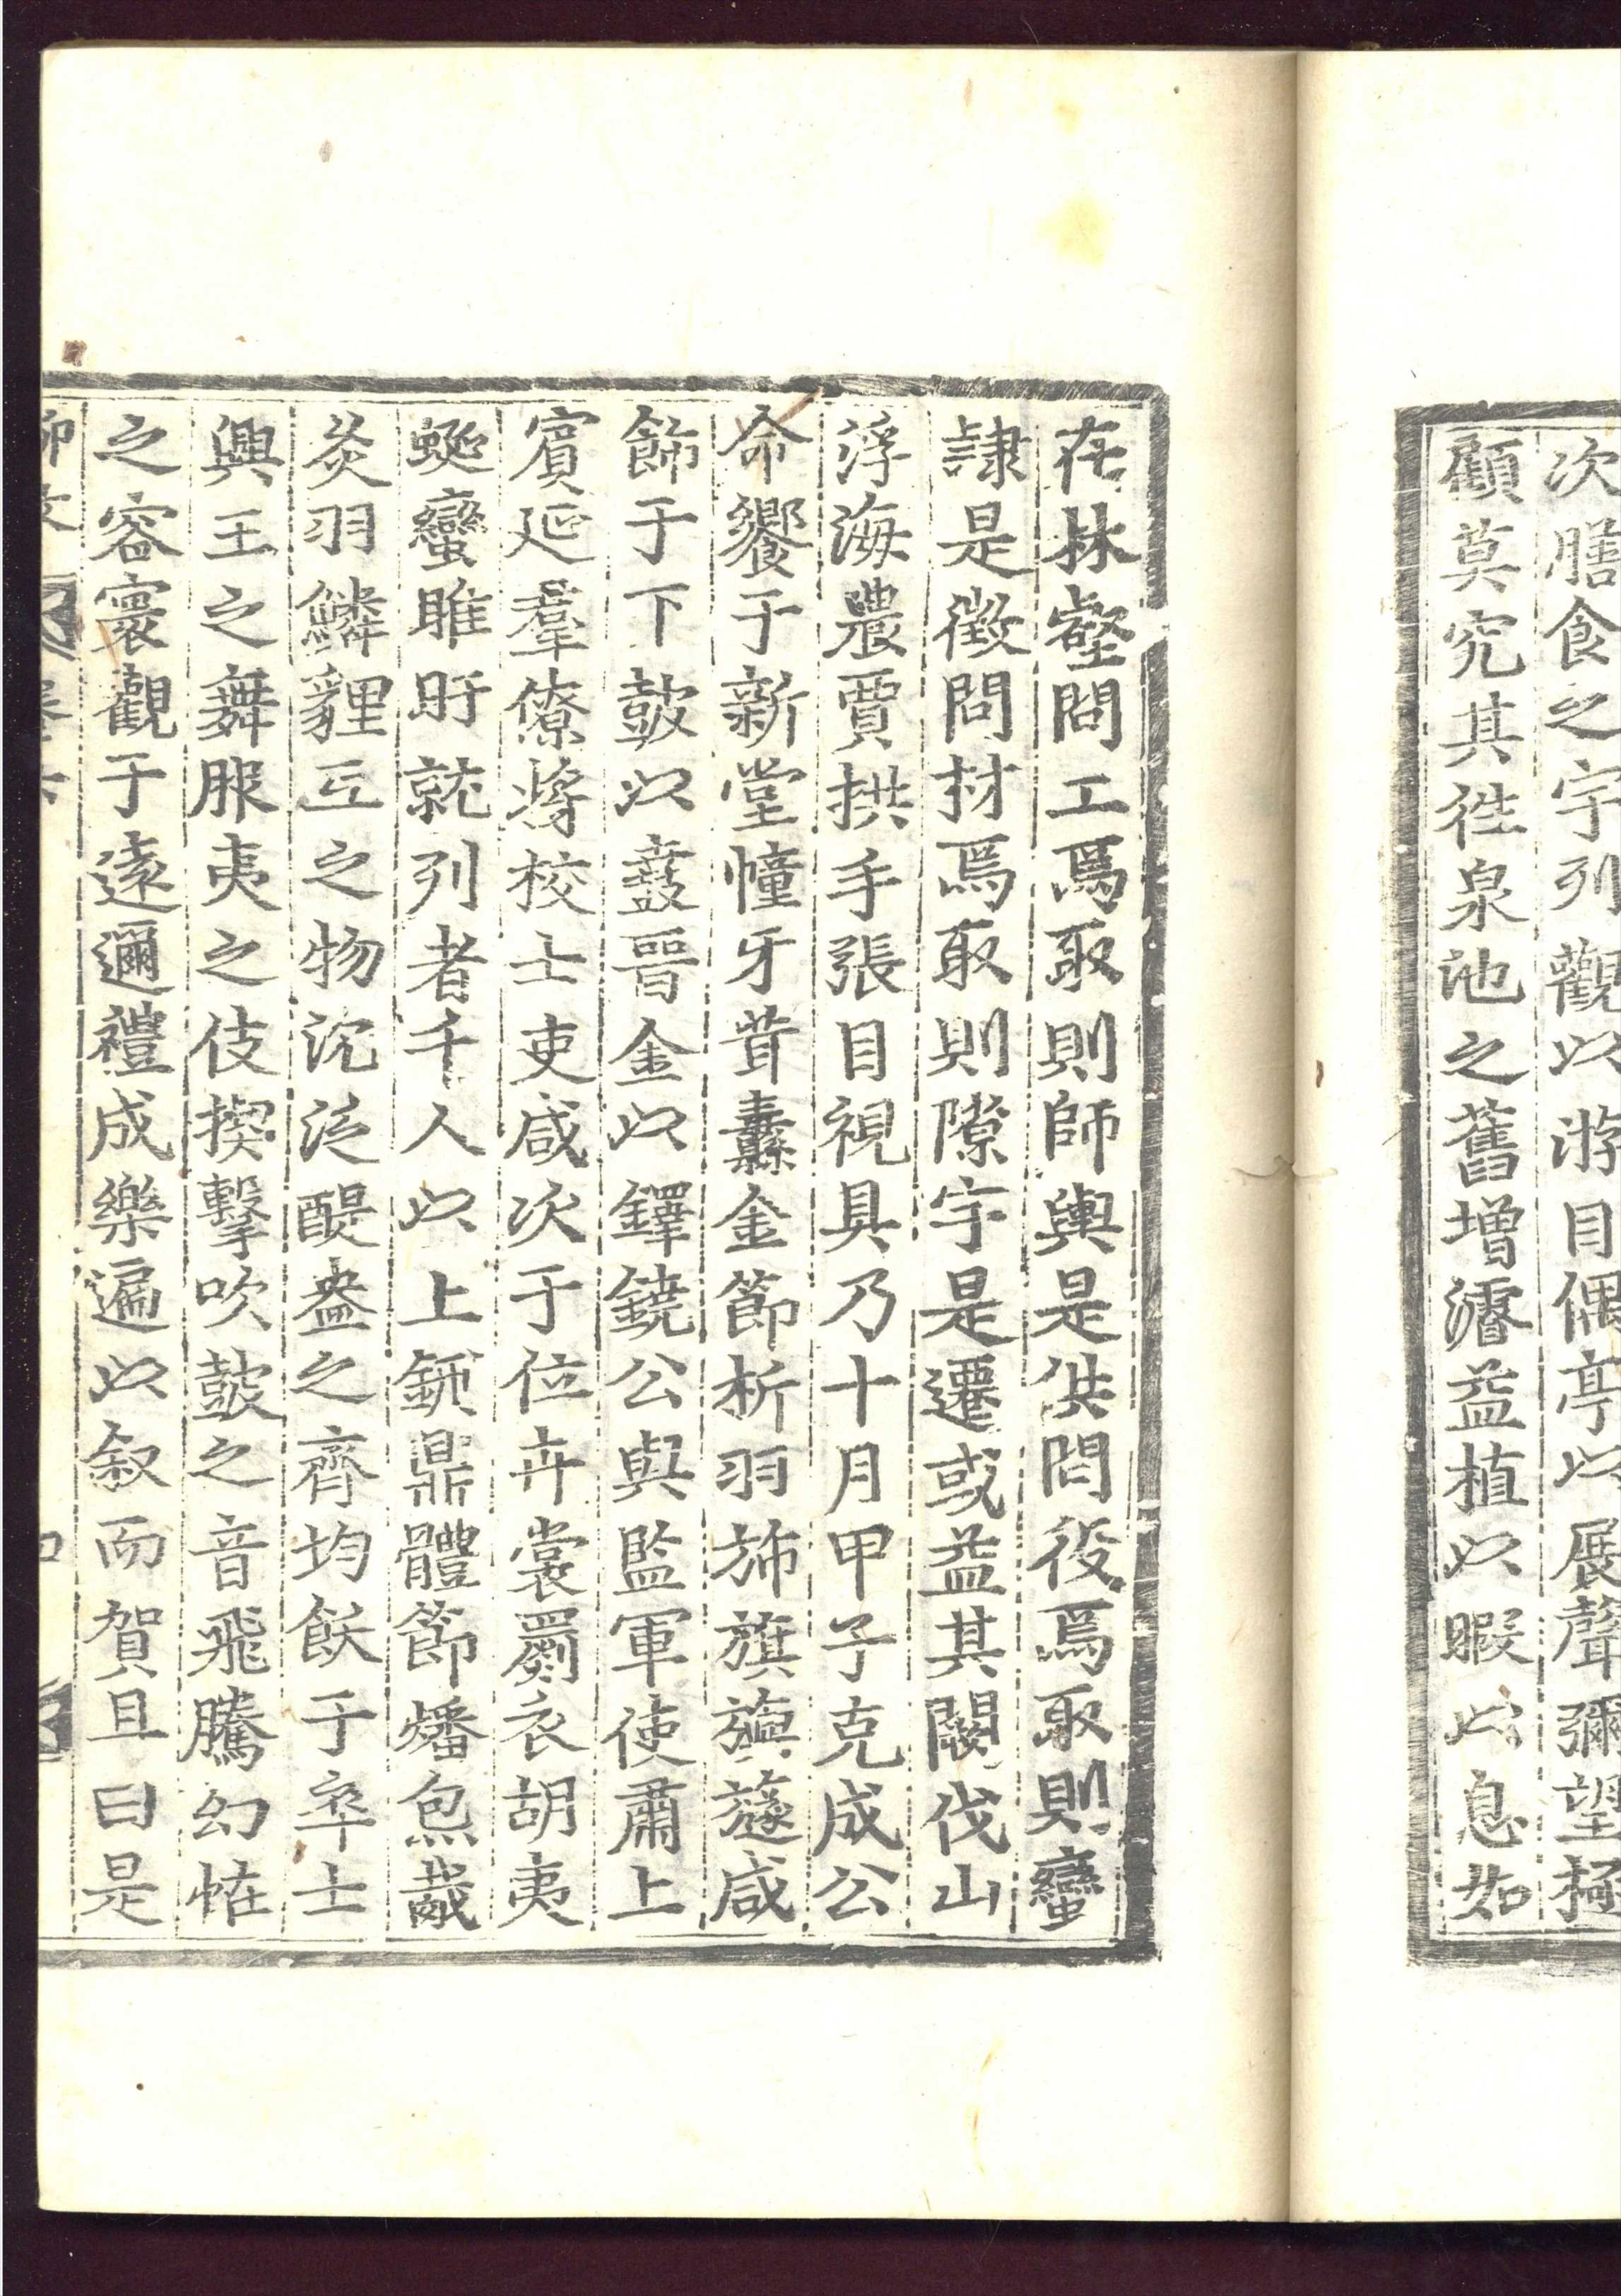 次膳食之宇列觀以游目偶亭以展聲彌望極
顧莫究其徃泉池之舊增濬益植以暇以息如
在林壑問工焉取則師輿是供問役焉取則蠻
隷是徵問材焉取則隙宇是遷或益其闕伐山
浮海農賈拱手張目視具乃十月甲子克成公
命饗于新堂幢牙茸纛金節析羽旆旗旟旞咸
飾于下鼓以鼖晉金以鐸鐃公與監軍使肅上
賓延羣僚將校士吏咸次于位卉裳罽衣胡夷
蜒蠻睢盱就列者千人以上鉶鼎體節燔炰胾
炙羽鱗貍互之物沉泛醍盎之齊均飫于卒士
興王之舞服夷之伎揳擊吹鼓之音飛騰幻怪
之容寰觀于遠邇禮成樂遍以叙而賀且曰是